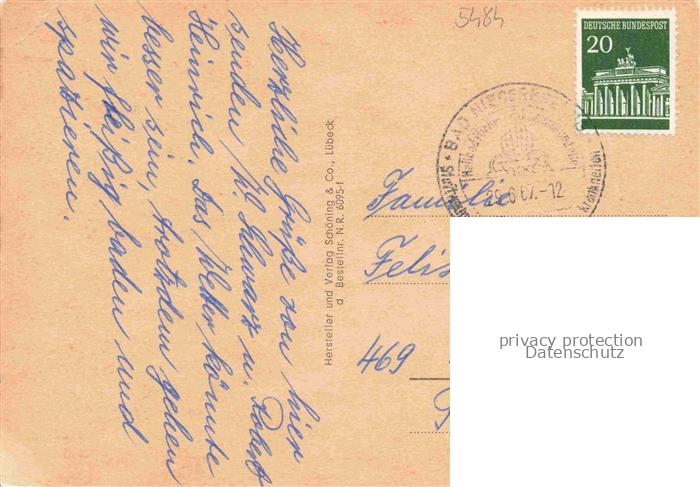 5484
DEUTSCHE BUNDESPOST
20
BAD NIEDERBREISIG
29.6.67.-12
Herzliche Grüße von hier
senden, W. Schwarz u. Robert
Heinrich. Das Wetter könnte
besser sein, trotzdem gehen
wir fleißig baden und
spazieren.
Hersteller und Verlag Schöning & Co., Lübeck
d Bestellnr. N.R. 6095-f
Familie
Felis
469
privacy protection
Datenschutz